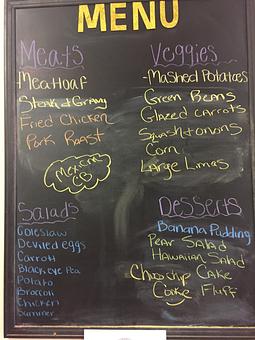 MENU
Meats
Meatloaf
Steak & Gravy
Fried Chicken
Pork Roast
Mexican
CB
Veggies
-Mashed Potatoes
Green Beans
Glazed Carrots
Squash & onions
Corn
Large Limas
Salads
Coleslaw
Deviled eggs
Carrott
Black eye Pea
Potato
Broccoli
Chicken
Summer
Desserts
Banana Pudding
Pear Salad
Hawaiian Salad
Choc chip Cake
Cookie Fluff